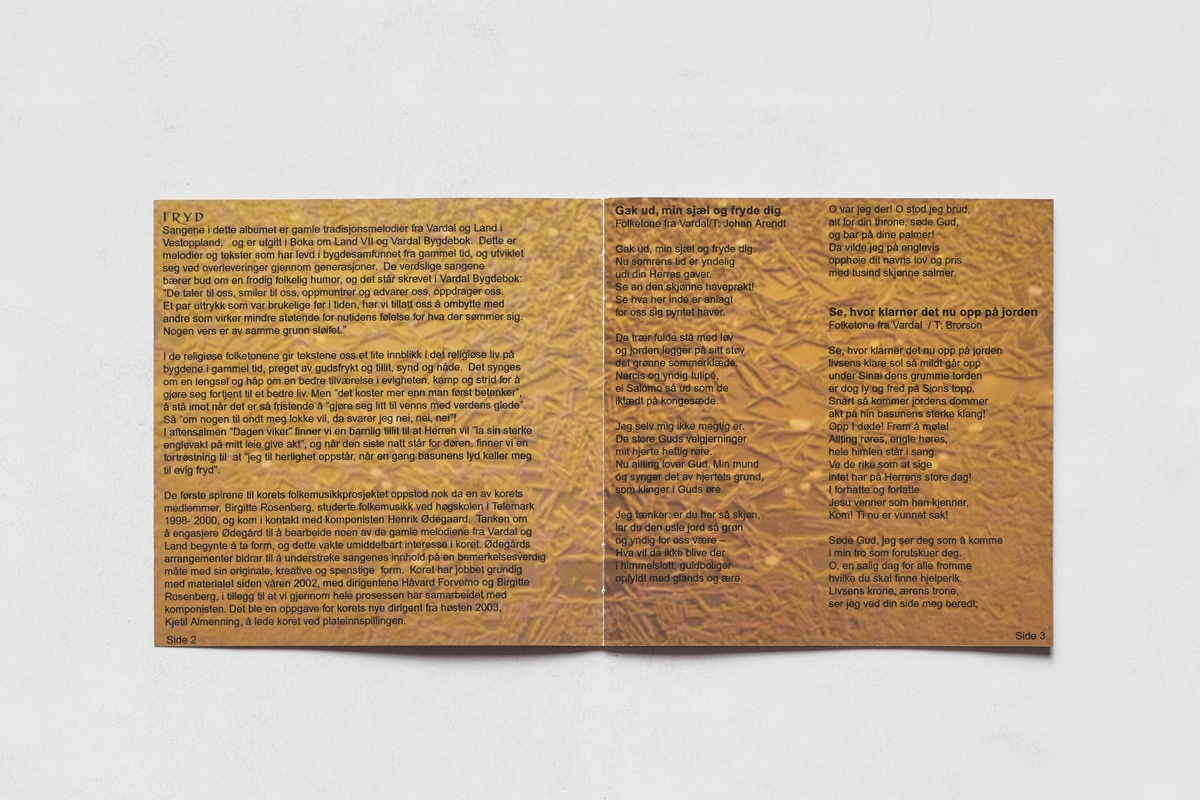 FRYD
Sangene i dette albumet er gamle tradisjonsmelodier fra Vardal og Land i
Vestoppland,   og er utgitt i Boka om Land VII og Vardal Bygdebok.  Dette er
melodier og tekster som har levd i bygdesamfunnet fra gammel tid, og utviklet
seg ved overleveringer gjennom generasjoner.  De verdslige sangene
bærer bud om en frodig folkelig humor, og det står skrevet i Vardal Bygdebok:
"De taler til oss, smiler til oss, oppmuntrer og advarer oss, oppdrager oss.
Et par uttrykk som var brukelige før i tiden, har vi tillatt oss å ombytte med
andre som virker mindre støtende for nutidens følelse for hva der sømmer sig.
Nogen vers er av samme grunn sløifet."
I de religiøse folketonene gir tekstene oss et lite innblikk i det religiøse liv på
bygdene i gammel tid, preget av gudsfrykt og tillit, synd og nåde.  Det synges
om en lengsel og håp om en bedre tilværelse i evigheten, kamp og strid for å
gjøre seg fortjent til et bedre liv. Men "det koster mer enn man først betenker",
å stå imot når det er så fristende å "gjøre seg litt til venns med verdens glede".
Så "om nogen til ondt meg lokke vil, da svarer jeg nei, nei, nei"!
I aftensalmen "Dagen viker" finner vi en barnlig tillit til at Herren vil "la sin sterke
englevakt på mitt leie give akt", og når den siste natt står for døren, finner vi en
fortrøstning til  at "jeg til herlighet oppstår, når en gang basunens lyd kaller meg
til evig fryd".
De første spirene til korets folkemusikkprosjektet oppstod nok da en av korets
medlemmer, Birgitte Rosenberg, studerte folkemusikk ved høgskolen i Telemark
1998- 2000, og kom i kontakt med komponisten Henrik Ødegaard.  Tanken om
å engasjere Ødegård til å bearbeide noen av de gamle melodiene fra Vardal og
Land begynte å ta form, og dette vakte umiddelbart interesse i koret. Ødegårds
arrangementer bidrar til å understreke sangenes innhold på en bemerkelsesverdig
måte med sin originale, kreative og spenstige  form.  Koret har jobbet grundig
med materialet siden våren 2002, med dirigentene Håvard Forvemo og Birgitte
Rosenberg, i tillegg til at vi gjennom hele prosessen har samarbeidet med
komponisten. Det ble en oppgave for korets nye dirigent fra høsten 2003,
Kjetil Almenning, å lede koret ved plateinnspillingen.
Side 2
Gak ud, min sjæl og fryde dig
Folketone fra Vardal/T: Johan Arendt
Gak ud, min sjæl og fryde dig.
Nu somrens tid er yndelig
udi din Herres gaver.
Se an den skjønne haveprakt!
Se hva her inde er anlagt
for oss sig pyntet haver.
De trær fulde stå med løv
og jorden legger på sitt støv
det grønne sommerklæde.
Narcis og yndig tulipé,
ei Salomo så ud som de
iklædt på kongesæde.
Jeg selv mig ikke megtig er.
De store Guds velgjerninger
mit hjerte heftig røre.
Nu allting lover Gud. Min mund
óg synger det av hjertets grund,
som klinger i Guds øre.
Jeg tænker: er du her så skjøn,
lar du den usle jord så grøn
og yndig for oss være –
Hva vil da ikke blive der
i himmelslott, guldboliger
opfyldt med glands og ære.
O var jeg der! O stod jeg brud,
alt for din throne, søde Gud,
og bar på dine palmer!
Da vilde jeg på englevis
opphøie dit navns lov og pris
med tusind skjønne salmer.
Se, hvor klarner det nu opp på jorden
Folketone fra Vardal  / T: Brorson
Se, hvor klarner det nu opp på jorden
livsens klare sol så mildt går opp
under Sinai dens grumme torden
er dog ly og fred på Sions topp.
Snart så kommer jordens dommer
akt på hin basunens sterke klang!
Opp I døde! Frem å møte!
Allting røres, engle høres,
hele himlen står i sang.
Ve de rike som at sige
intet har på Herrens store dag!
I forhatte og forlatte
Jesu venner som han kjenner,
Kom! Ti nu er vunnet sak!
Søde Gud, jeg ser deg som å komme
i min tro som forutskuer deg.
O, en salig dag for alle fromme
hvilke du skal finne hjelperik.
Livsens krone, ærens trone,
ser jeg ved din side meg beredt;
Side 3